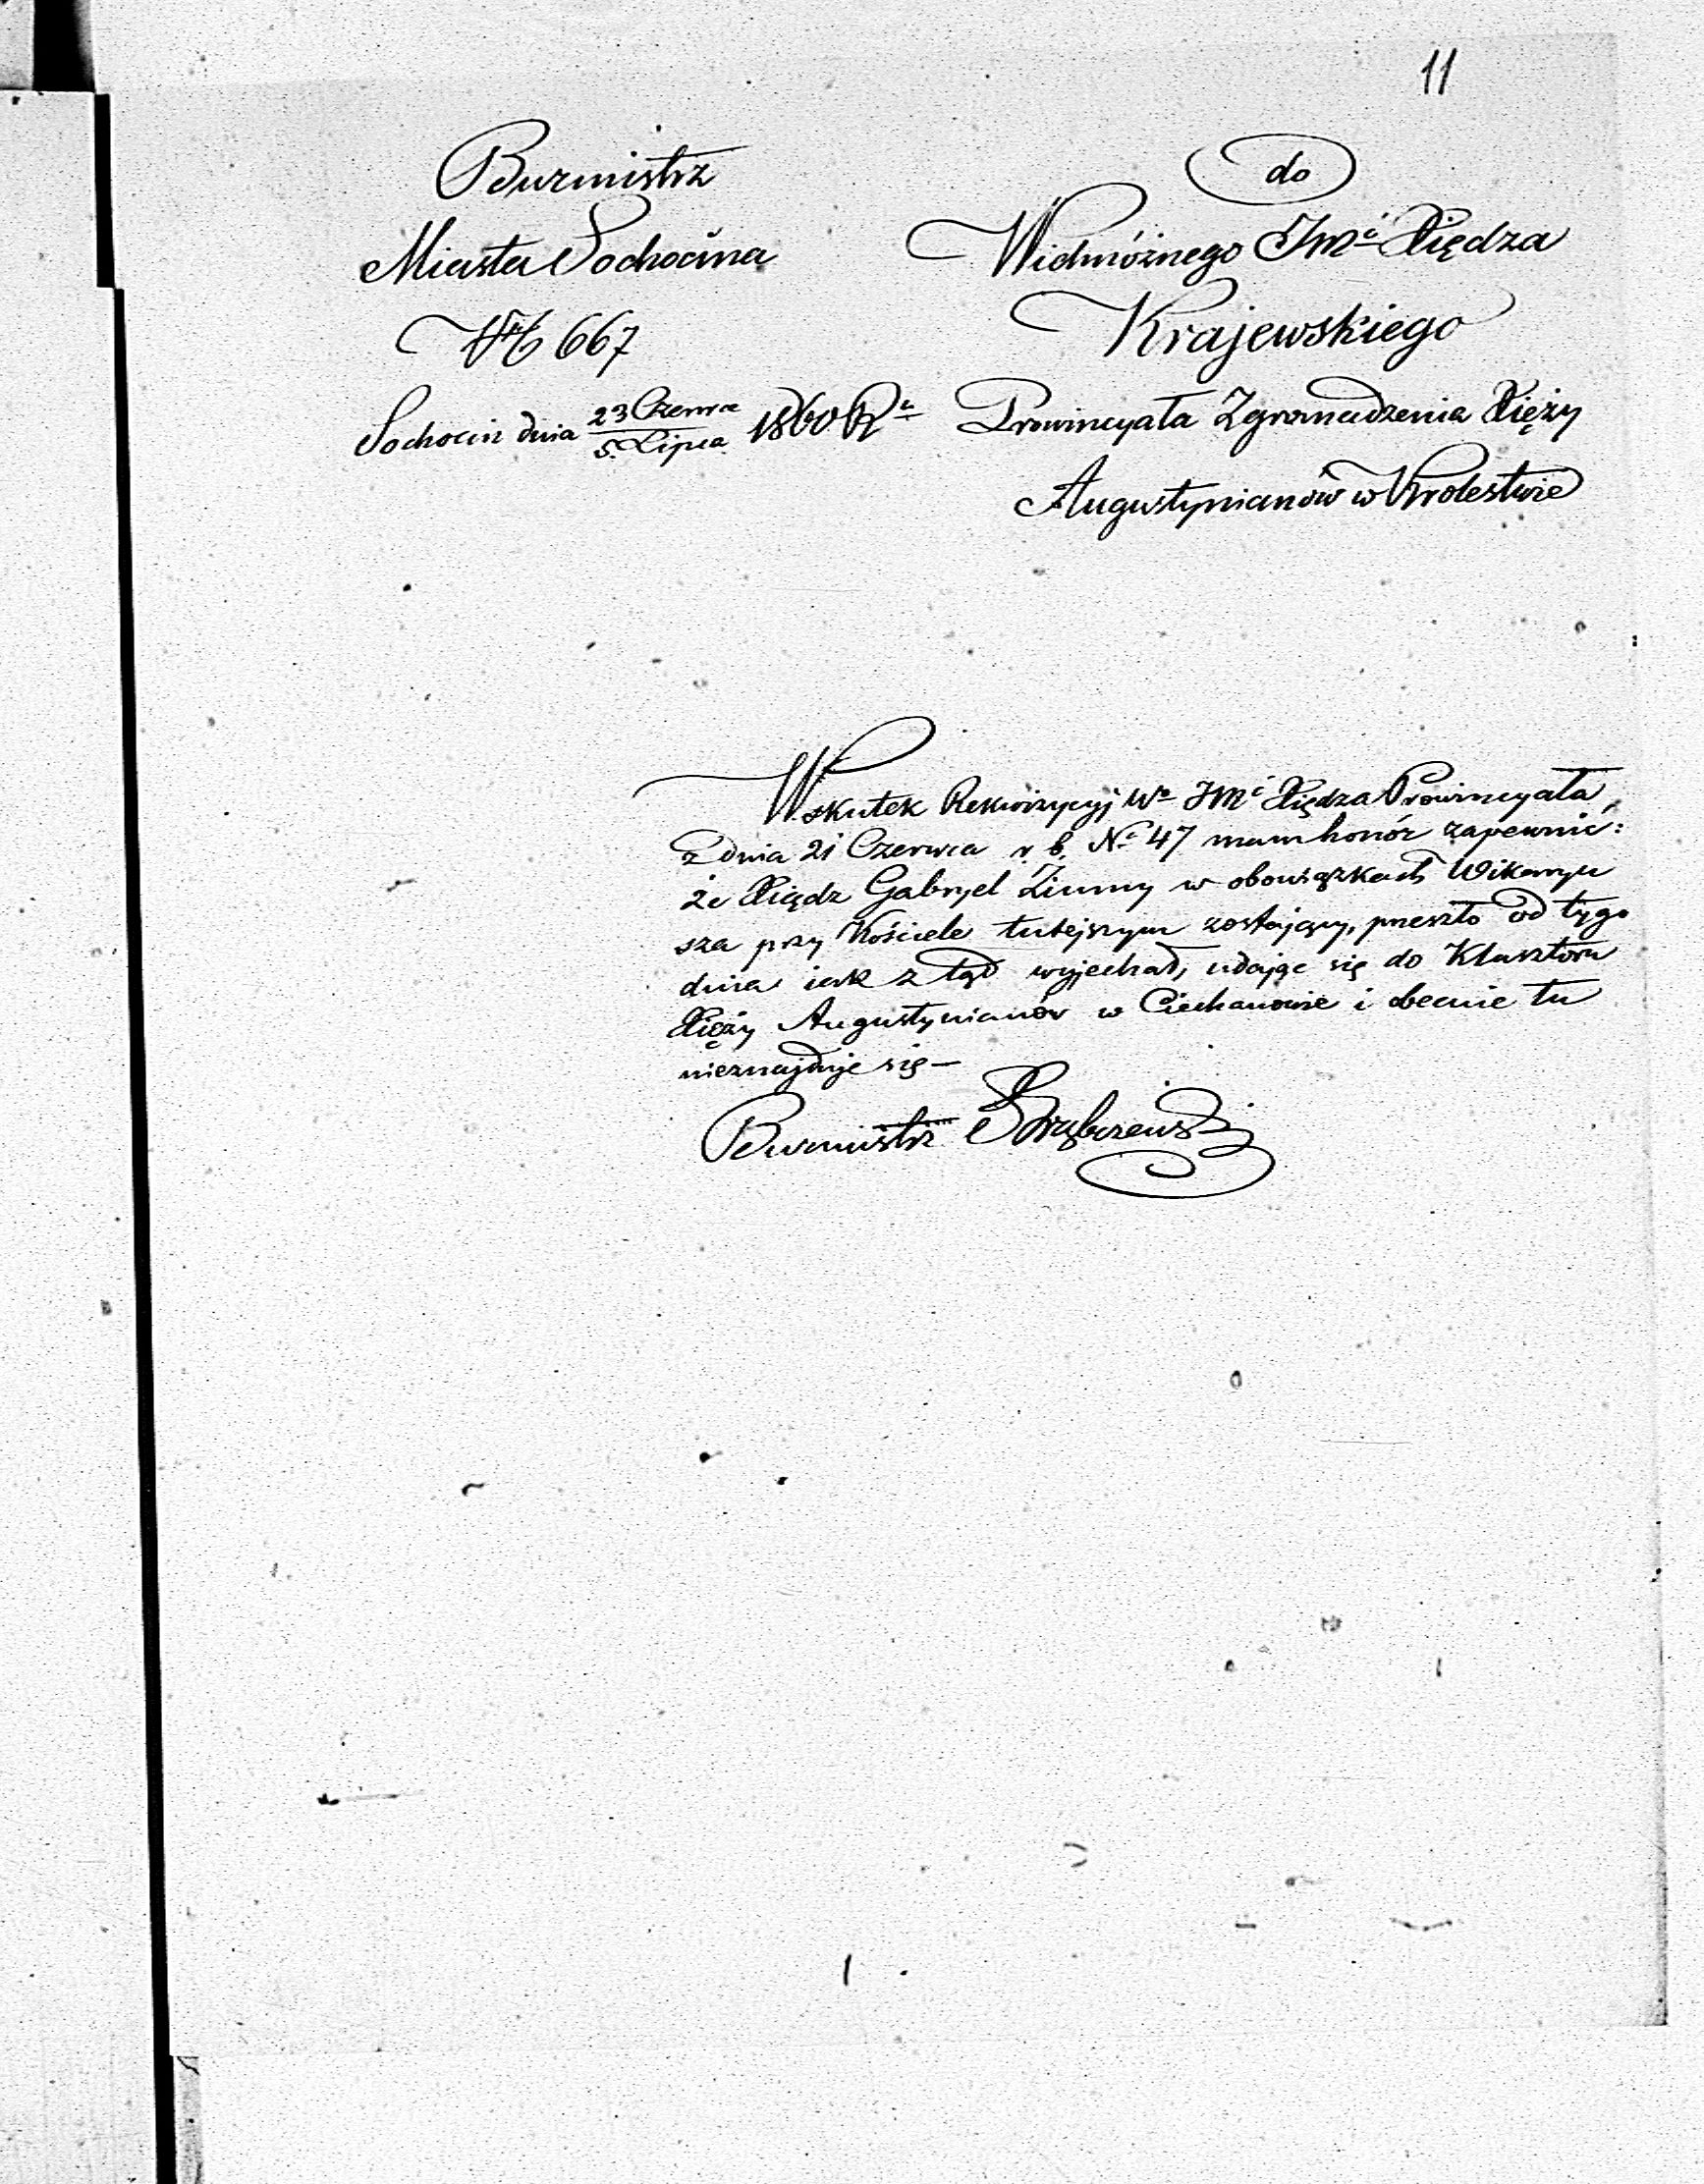 11
Burmistrz
Miasta Sochocina
№ 667
Sochocin dnia 23 Czerwca / 5. Lipca 1860 Rª
do
Wielmóżnego JMć Xiędza
Krajewskiego
Prowincyała Zgromadzenia Xięży
Augustynianów w Krolestwie
Wskutek Rekwizycyj Wº JMć Xiędza Prowincyała,
z dnia 21 Czerwca r. b. Nº 47 mam honór zapewnić:
że Xiądz Gabryel Zimny w obowiązkach Wikaryu
sza przy Kościele tutejszym zostający, przeszło od tygo
dnia iak z tąd wyjechał, udając się do Klasztoru
Xięży Augustynianów w Ciechanowie i obecnie tu
nieznajduje się —
Burmistrz